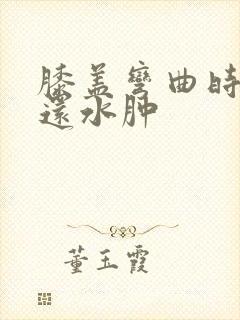 膝盖弯曲时
还水肿
董玉霞